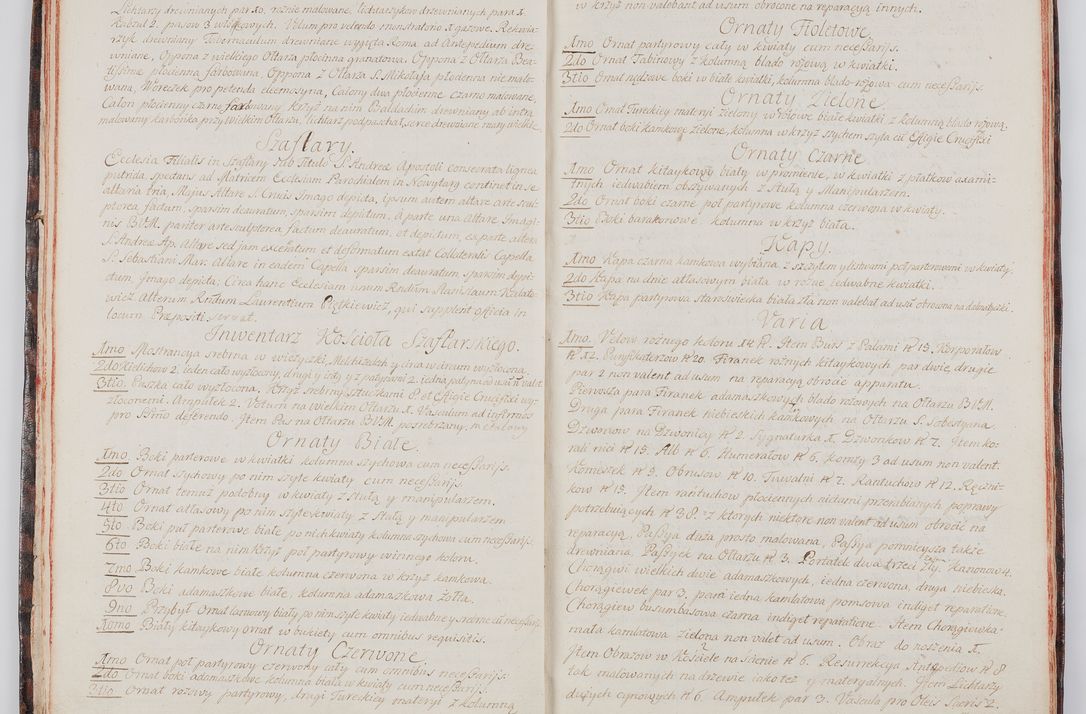 Lichtarzy drewnianych par 10. rożnie malowane, lichtarzykow drewnianych para 1.
Kabrul 2. pasow 3 włoskowych. Velum pro velendo monstratorio 1 gazowe. Rekwia-
rzyk drewniany Tabernaculum drewniane wygięta Roma ad Antepedium dre-
wniane, Oppona z wielkiego Ołtarza płocienna granatowa. Oppona z Ołtarza Bea-
tissimæ płocienna farbowana, Oppona z Ołtarza S. Mikołaja płocienna nie malo-
wana, Woreszek pro petenda eleemosyna, Całony dwa płocienne czarno malowane,
Całon płocienny czarno farbowany krzyż na nim Baldachim drewniany ab intra
malowany karbonka przy wielkim Ołtarzu, lichtarz pod paschał, serce drewniane mały wielkie
Szaflary.
Ecclesia Filialis in Szaflary sub Titulo S. Andreæ Apostoli consecrata lignea
putrida spectans ad Matricem Ecclesiam Parochialem in Nowytarg continet in se
altaria tria, Majus Altare S. Crucis Imago depicta, ipsum autem altare arte scul-
ptorea factum, sparsim deauratum, sparsim depictum, a parte una Altare Imagi-
nis B.V.M. pariter arte sculptorea factum deauratum, et depictum, ex parte altera
S. Andreæ Ap. Altare sed jam excentum et deformatum extat Collateralis Capella
S. Sebastiani Mar. Altare in eadem Capella sparsim deauratum, sparsim depi-
ctum, Imago depicta; Circa hanc Ecclesiam unum Rndum Stanislaum Kulato-
wicz alterum Rndum Laurentium Piętkiewicz, qui supplent officia in
locum Præpositi servat.
Inwentarz Kościoła Szaflarskiego.
1mo Monstrancya srebrna w wieżyczki, Melchizedech y cyra w drewn wyzłocona.
2do Kielichow 2. ieden cało wyzłocony, drugi y cały y z patynami 2. iedna patyna ad usum valet
3tio Puszka cało wyzłocona. Krzyż srebrny sztuckami 8 et Effigie Crucifixi wy-
złoconemi. Ampułek 2. Votum na wielkim Ołtarzu 1. Vasculum ad infirmos
pro SSmo deferendo. Item Pas na Ołtarzu B.V.M. posrebrzany, metalowy
Ornaty Białe.
1mo Boki parterowe w kwiatki kolumna szychowa cum necessarijs.
2do Ornat szychowy po nim szyte kwiaty cum necessarijs.
3tio Ornat temuż podobny w kwiaty z stułą y manipularzem.
4to Ornat atłasowy po nim szyte kwiaty z stułą y manipularzem
5to Boki puł parterowe białe po nich kwiaty kolumna szychowa cum necessarijs.
6to Boki białe na nim krzyż puł partyrowy winnego koloru.
7mo Boki kamkowe białe kolumna czerwona w krzyż kamkowa.
8vo Boki adamaszkowe białe, kolumna adamaszkowa żołta.
9no Przybył Ornat lamowy biały po nim szyte kwiaty iedwabne y srebrne cum necessarijs
10mo Biały kitaykowy ornat w bukiety cum omnibus requisitis.
Ornaty Czerwone
1mo Ornat puł partyrowy czerwony cały cum omnibus necessarijs.
2do Ornat boki adamaszkowe kolumna biała w kwiaty cum necessarijs.
3tio Ornat rożowy partyrowy, drugi Tureckiey materyi z kolumną
w krzyż non valebant ad usum obrocone na reparacyą innych.
Ornaty Fioletowe.
1mo Ornat partyrowy cały w kwiaty cum necessarijs.
2do Ornat Tabinowy z kolumną blado rożową w kwiatki.
3tio Ornat nędzowe boki w białe kwiatki, kolumna blado rożowa cum necessarijs.
Ornaty Zielone
1mo Ornat Tureckiey materyi zielony w rożowe białe kwiatki z kolumną blado rożową.
2do Ornat boki kamkowe zielone, kolumna w krzyż szychem szyta cum Effigie Crucifixi
Ornaty Czarne
1mo Ornat kitaykowy biały w promienie, w kwiatki z płatkow axami-
tnych iedwabiem obszywanych z stułą y Manipularzem.
2do Ornat boki czarne puł partyrowe kolumna czerwona w kwiaty.
3tio Boki barakonowe kolumna w krzyż biała.
Kapy.
1mo Kapa czarna kamkowa wybijana z szczytem y listwami puł parterowemi w kwiaty.
2do Kapa na dnie atłasowym biała w rożne iedwabne kwiatki.
3tio Kapa partyrowa staroświecka biała zła non valebat ad usum obrocona na dalmatyki.
Varia
1mo Velow rożnego koloru 14 N. Item Burs z Palami N 15. Korporałow
N 12. Puryfikaterzow N 20. Firanek rożnych kitaykowych par dwie, drugie
par 2 non valent ad usum na reparacyą obrocie apparatu.
Pierwsza para Firanek adamaszkowych blado rożowych na Ołtarzu B.V.M.
Druga para Firanek niebieskich kamkowych na Ołtarzu S. Sebestyana.
Dzwonow na Dzwonicy N 2. Sygnaturka 1. Dzwonkow N 7. Item ko-
rali nici N 15. Alb N 6. Humerałow N 6. komży 3 ad usum non valent.
Komeszek N 9. Obrusow N 10. Tuwalni N 7. Rantuchow N 12. Ręczni-
kow N 15. Item rantuchow płociennych nićami przerabianych poprawy
potrzebuiących N 38. z ktorych niektore non valent ad usum obrocić na
reparacyą, Passya duża prosto malowana, Passya pomnieysza także
drewniana, Passyiek na Ołtarzu N 3. Portatek dwa trzeci zły. Kanonow 4.
Chorągwi wielkich dwie adamaszkowych, iedna czerwona, druga niebieska.
Chorągiewek par 3. para iedna kamlatowa ponsowa indiget reparatione.
Chorągiew busumbasowa czarna indiget reparatione. Item Chorągiewka
mała kamlatowa zielona non valet ad usum. Obraz do noszenia 1.
Item Obrazow w Kościele na ścienie N 6. Resurrekcya Antepediow N 8
tak malowanych na drzewie iako też y materyalnych. Item Lichtarzy
dużych cynowych N 6. Ampułek par 3. Vascula pro Oleis Sacris 2.